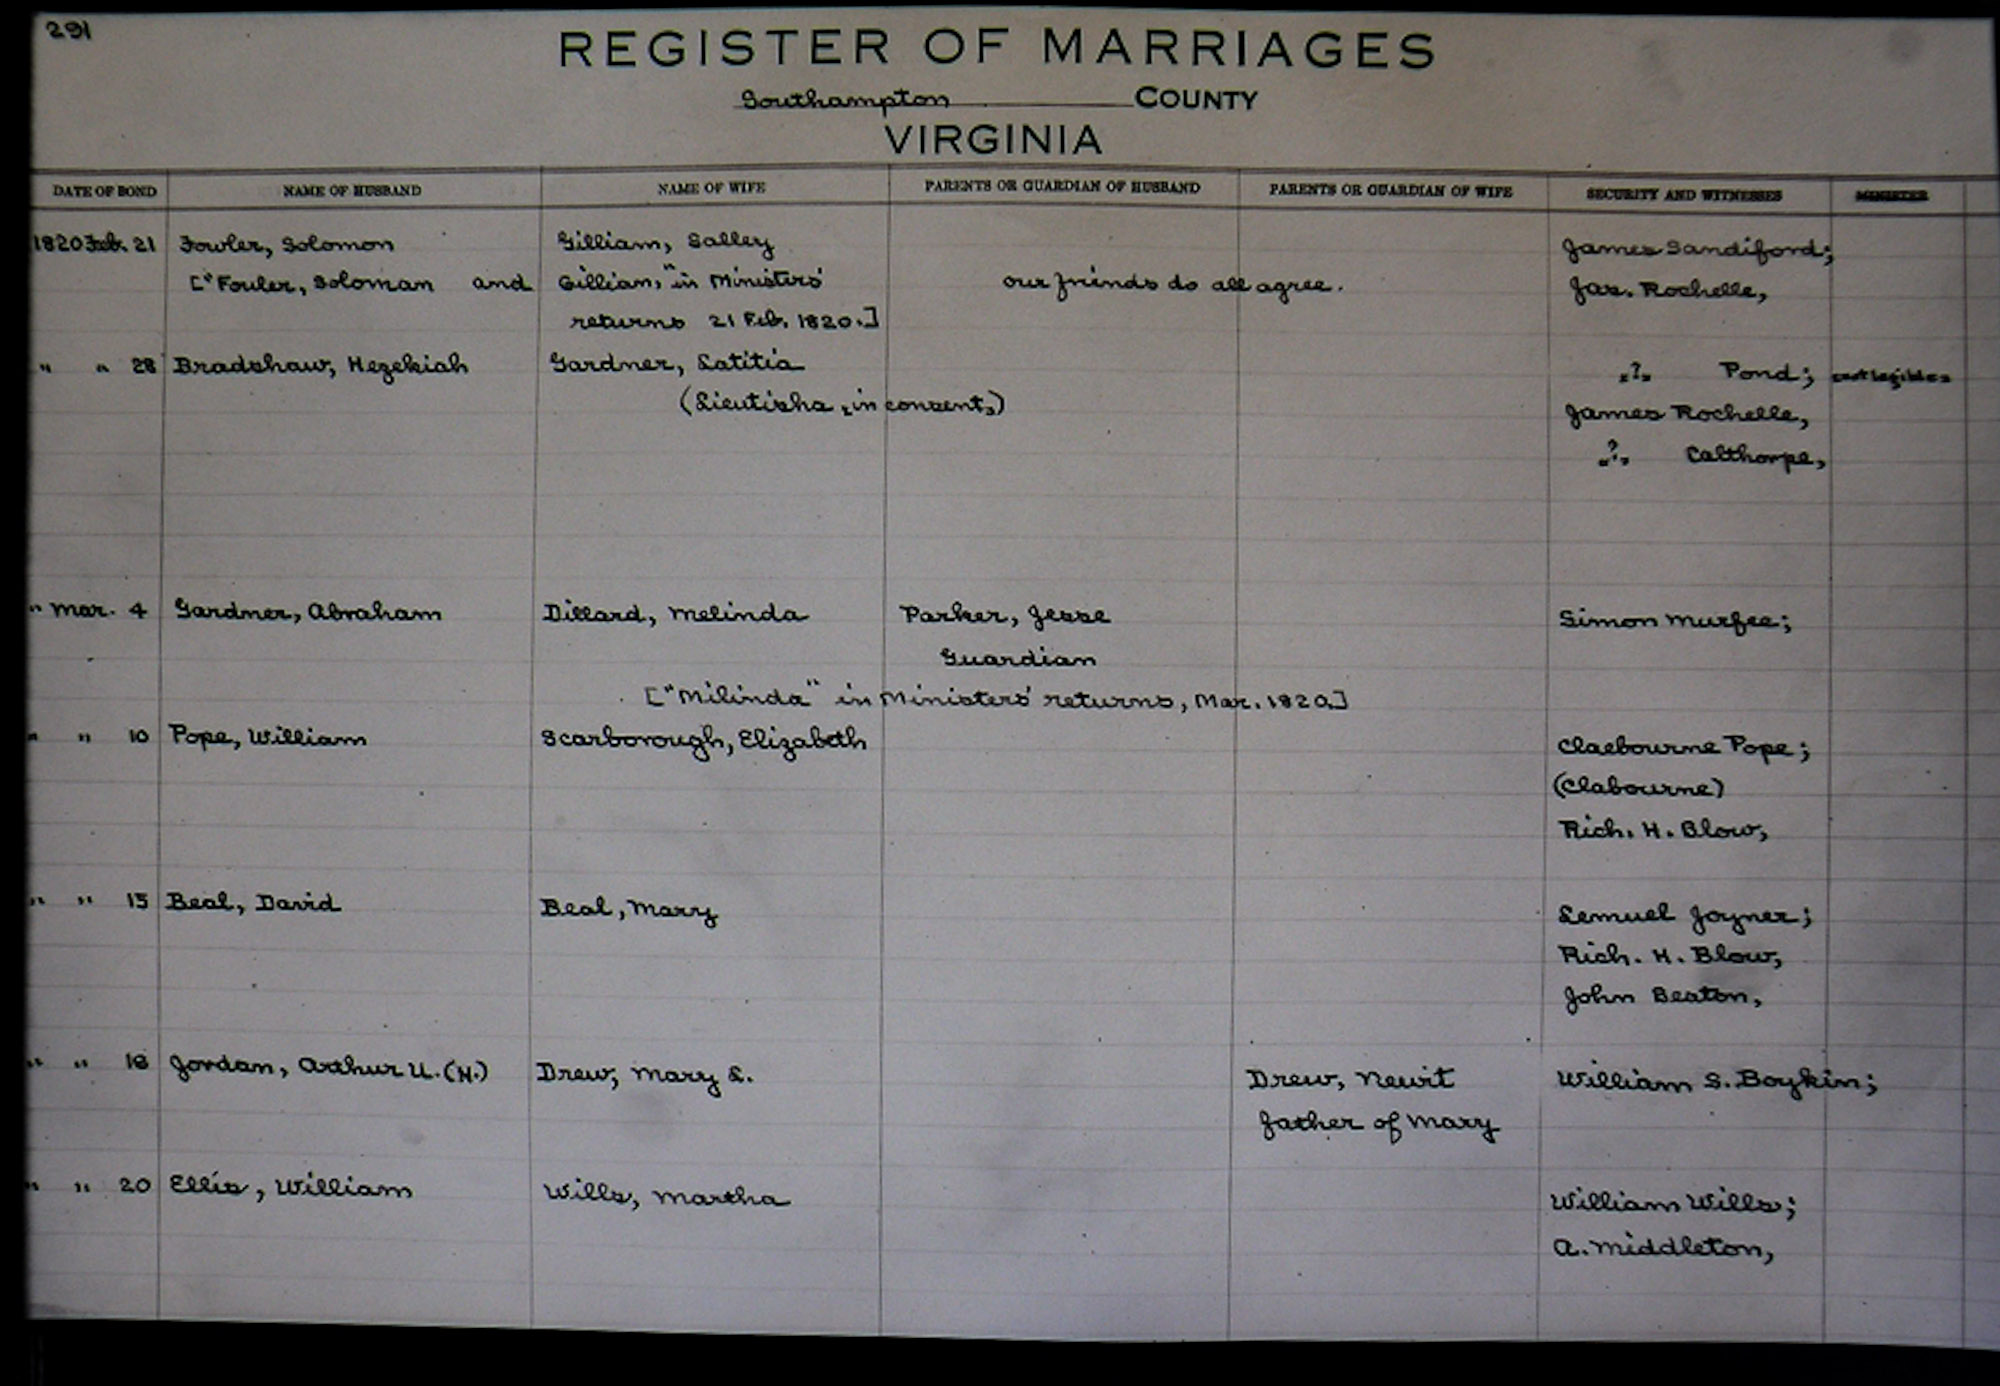 291
REGISTER OF MARRIAGES
Southampton COUNTY
VIRGINIA
DATE OF BOND NAME OF HUSBAND NAME OF WIFE PARENTS OR GUARDIAN OF HUSBAND PARENTS OR GUARDIAN OF WIFE SECURITY AND WITNESSES MINISTER
1820 Feb. 21 Fowler, Solomon Gilliam, Salley James Sandiford;
["Fouler, Soloman and Gilliam," in Ministers' our friends do all agree. Jas. Rochelle,
returns 21 Feb. 1820.]
" " 28 Bradshaw, Hezekiah Gardner, Latitia "?" Pond; not legible
(Lieutisha "in consent") James Rochelle,
"?" Calthorpe,
" Mar. 4 Gardner, Abraham Dillard, Melinda Parker, Jesse Simon Murfee;
Guardian
["Milinda" in Ministers' returns, Mar. 1820.]
" " 10 Pope, William Scarborough, Elizabeth Claebourne Pope;
(Clabourne)
Rich. H. Blow,
" " 15 Beal, David Beal, Mary Lemuel Joyner;
Rich. H. Blow,
John Beaton,
" " 18 Jordan, Arthur U. (H.) Drew, Mary L. Drew, Newit William S. Boykin;
father of Mary
" " 20 Ellis, William Wills, Martha William Wills;
A. Middleton,